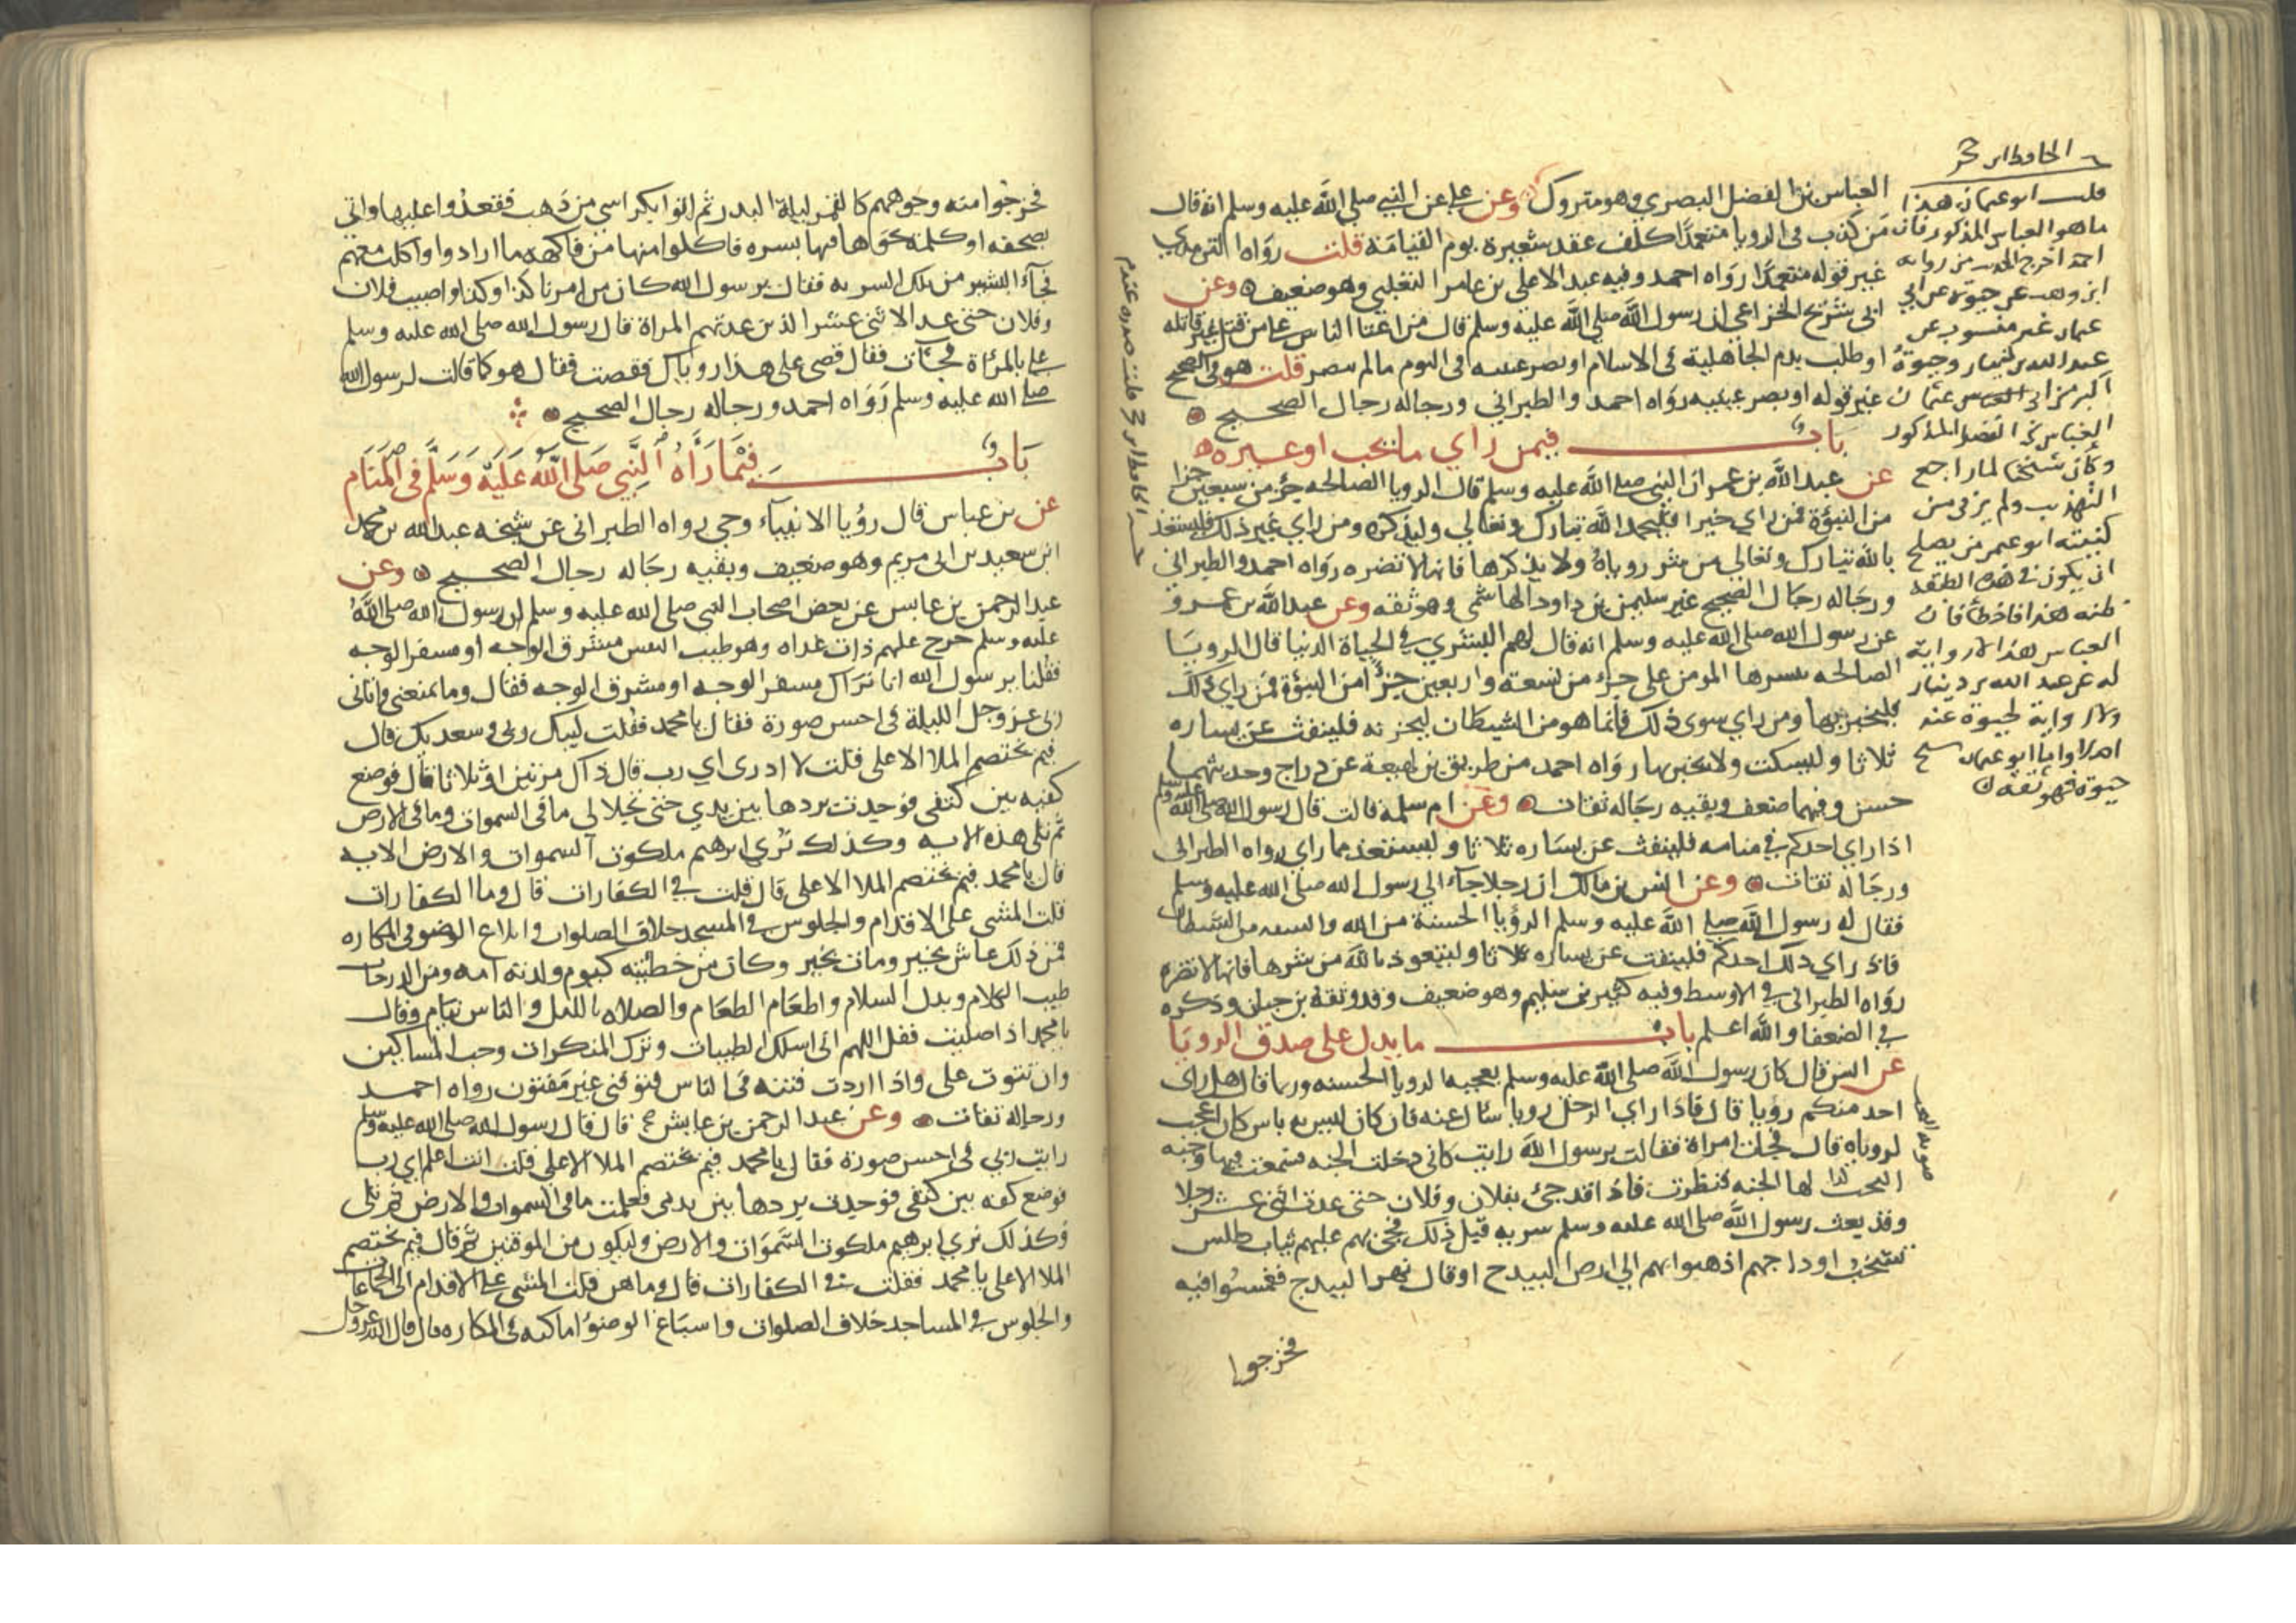 العباس بن الفضل البصري وهو متروك وعن علي عن النبي صلي الله عليه وسلم انه قال
من كذب في الرويا متعمدا كلف عقد شعيرة يوم القيامة قلت رواه الترمدي
غير قوله متعمدا رواه احمد وفيه عبد الاعلي بن عامر الثعلبي وهو ضعيف وعن
ابي شريح الخزاعي ان رسول الله صلي الله عليه وسلم قال من اعتا الناس علي من قتل غير قاتله
او طلب بدم الجاهلية في الاسلام او بصر عينيه في النوم مالم تبصر قلت هو في الصحيح
غير قوله او بصر عينيه رواه احمد والطبراني ورجاله رجال الصحيح
باب فيمن راي ما يحب او غيره
عن عبد الله بن عمر ان النبي صلي الله عليه وسلم قال الرويا الصالحه جزء من سبعين جزا
من النبؤة فمن راي خيرا فليحمد الله تبارك وتعالي وليذكره ومن راي غير ذلك فليستعذ
بالله تبارك وتعالي من شر روياه ولا يذكرها فانها لا تضره رواه احمد والطبراني
ورجاله رجال الصحيح غير سليمن بن داود الهاشمي وهو ثقه وعن عبد الله بن عمرو
عن رسول الله صلي الله عليه وسلم انه قال لهم البشري في الحياة الدنيا قال الرويا
الصالحه يبشرها المومن علي جزء من تسعة واربعين جزءا من النبؤة فمن راي ذلك
فليخبر بها ومن راي سوي ذلك فانما هو من الشيطان ليحزنه فلينفث عن يساره
ثلاثا وليسكت ولا يخبر بها رواه احمد من طريق بن لهيعة عن دراج وحديثهما
حسن وفيهما ضعف وبقيه رجاله ثقات وعن ام سلمة قالت قال رسول الله صلي الله عليه وسلم
اذا راي احدكم في منامه فلينفث عن يساره ثلاثا وليستعذ مما راي رواه الطبراني
ورجاله ثقات وعن انس بن مالك ان رجلا جاء الي رسول الله صلي الله عليه وسلم
فقال له رسول الله صلي الله عليه وسلم الرؤيا الحسنة من الله والسيه من الشيطان
فاذا راي ذلك احدكم فلينفث عن يساره ثلاثا وليتعوذ بالله من شرها فانها لا تضره
رواه الطبراني في الاوسط وفيه كثير بن سليم وهو ضعيف وقد وثقه بن حبان وذكره
في الضعفا والله اعلم باب ما يدل علي صدق الرويا
عن انس قال كان رسول الله صلي الله عليه وسلم يعجبه الرويا الحسنه وربما قال هل راي
احد منكم رؤيا قال فاذا راي الرجل رويا سال عنه فان كان ليس به باس كان اعجب
لروياه قال فجات امراة فقالت يرسول الله رايت كاني دخلت الجنه فسمعت فيها وجبه
لها الجنه فنظرت فاذا قد جئ بفلان وفلان حتي عدت اثني عشر رجلا
وقد بعث رسول الله صلي الله عليه وسلم سريه قبل ذلك فجئ بهم عليهم ثياب طلس
تشخب اوداجهم اذهبوا بهم الي ارض البيدح او قال نهر البيدج فغمسوا فيه
فخرجوا
الحافظ ابن حجر
قلت ابو عثمان هذا
ما هو العباس المذكور فان
احمد اخرج الحديث من رواية
ابن وهب عن حيوة عن ابي
عثمان غير منسوب عن
عبد الله بن دينار وحيوة
اكبر من ابي العباس عثمان
العباس بن الفضل المذكور
وكأن شيخنا لما راجع
التهذيب ولم ير في من
كنيته ابو عمر من يصلح
ان يكون في هذه الطبقه
ظنه هذا فاخطأ فان
العباس هذا لا رواية
له عن عبد الله بن دينار
ولا رواية لحيوة عنه
اصلا واما ابو عثمان شيخ
حيوة فهو ثقة
فخرجوا منه وجوههم كالقمر ليلة البدر ثم اتوا بكراسي من ذهب فقعدوا عليها واتي
بصحفه او كلمة نحوها فيها بسره فاكلوا منها من فاكهه ما ارادوا واكلت معهم
فجآء البشير من تلك السريه فقال يرسول الله كان من امرنا كذا وكذا واصيب فلان
وفلان حتي عد الاثني عشر الذين عدتهم المراة قال رسول الله صلي الله عليه وسلم
علي بالمرأة فجآت فقال قصي علي هذا روياك فقصت فقال هو كما قالت لرسول الله
صلي الله عليه وسلم رواه احمد ورجاله رجال الصحيح
باب فيما رآه النبي صلى الله عليه وسلم في المنام
عن بن عباس قال رؤيا الانبيآء وحي رواه الطبراني عن شيخه عبد الله بن محمد
ابن سعيد بن ابي مريم وهو ضعيف وبقيه رجاله رجال الصحيح وعن
عبد الرحمن بن عابس عن بعض اصحاب النبي صلي الله عليه وسلم ان رسول الله صلي الله
عليه وسلم خرج عليهم ذات غداه وهو طيب النفس مشرق الوجه او مسفر الوجه
فقلنا يرسول الله انا نراك مسفر الوجه او مشرق الوجه فقال وما يمنعني واتاني
ربي عز وجل الليلة في احسن صورة فقال يا محمد فقلت لبيك ربي وسعديك قال
فيم يختصم الملا الاعلي قلت لا ادري اي رب قال ذاك مرتين او ثلاثا قال فوضع
كفيه بين كتفي فوجدت بردها بين يدي حتي تجلا لي ما في السموات وما في الارض
ثم تلي هذه الايه وكذلك نري ابرهيم ملكوت السموات والارض الايه
قال يا محمد فيم يختصم الملا الاعلي قال قلت في الكفارات قال وما الكفارات
قلت المشي علي الاقدام والجلوس في المسجد خلاف الصلوات وابلاغ الوضو في المكاره
فمن ذلك عاش بخير ومات بخير وكان من خطيته كيوم ولدته امه ومن الدرجات
طيب الكلام وبدل السلام واطعام الطعام والصلاه بالليل والناس نيام وقال
يا محمد اذا صليت فقل اللهم اني اسلك الطيبات وترك المنكرات وحب المساكين
وان تتوب علي واذا اردت فتنه في الناس فتوفني غير مفتون رواه احمد
ورجاله ثقات وعن عبد الرحمن بن عايش قال قال رسول الله صلي الله عليه وسلم
رايت ربي في احسن صورة فقال يا محمد فيم يختصم الملا الاعلي قلت انت اعلم اي رب
فوضع كفه بين كتفي فوجدت بردها بين يدي فعلمت ما في السموات والارض ثم تلي
وكذلك نري ابرهيم ملكوت السموات والارض وليكون من الموقنين ثم قال فيم يختصم
الملا الاعلي يا محمد فقلت في الكفارات قال وما هن قلت المشي علي الاقدام الي الجماعات
والجلوس في المساجد خلاف الصلوات واسباغ الوضوء اماكنه في المكاره قال قال الله عز وجل